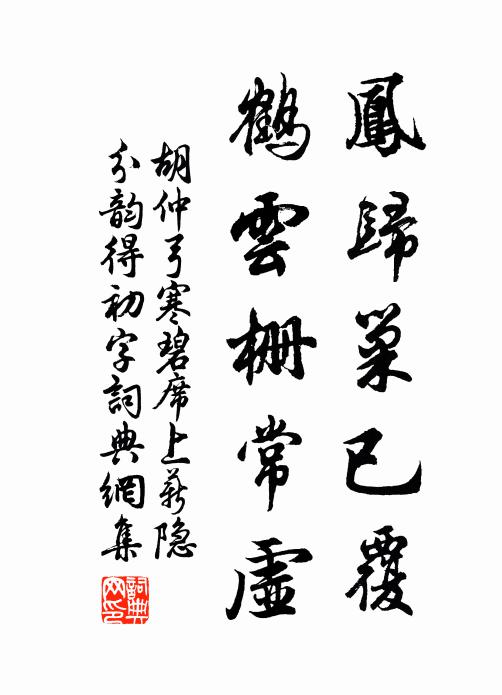 鳳歸巢已覆
鶴雲柵常虛
胡仲弓寒碧席上蘄隐
分韵得初字詞典網集
詞典
网印